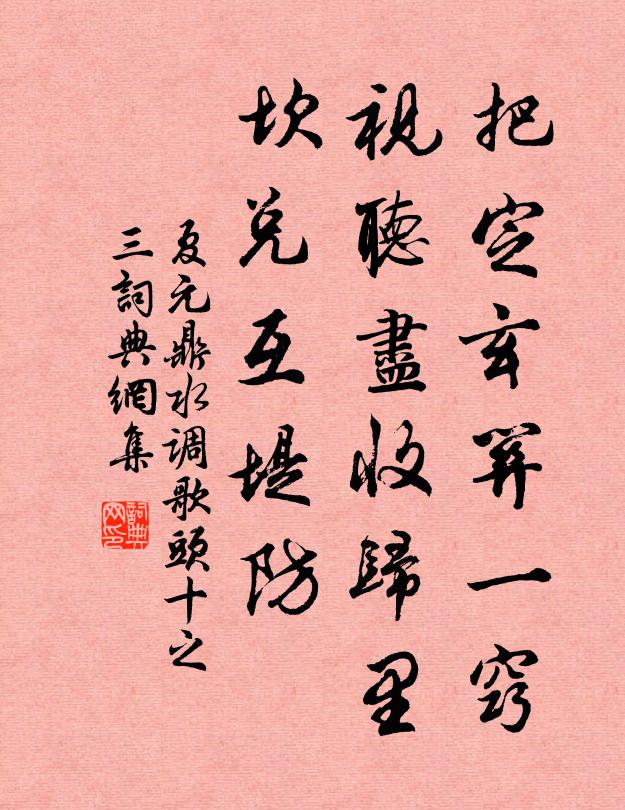 把定玄關一竅
視聽盡收歸里
坎兌互堤防
夏元鼎水调歌頭十之
三詞典網集
詞典网印